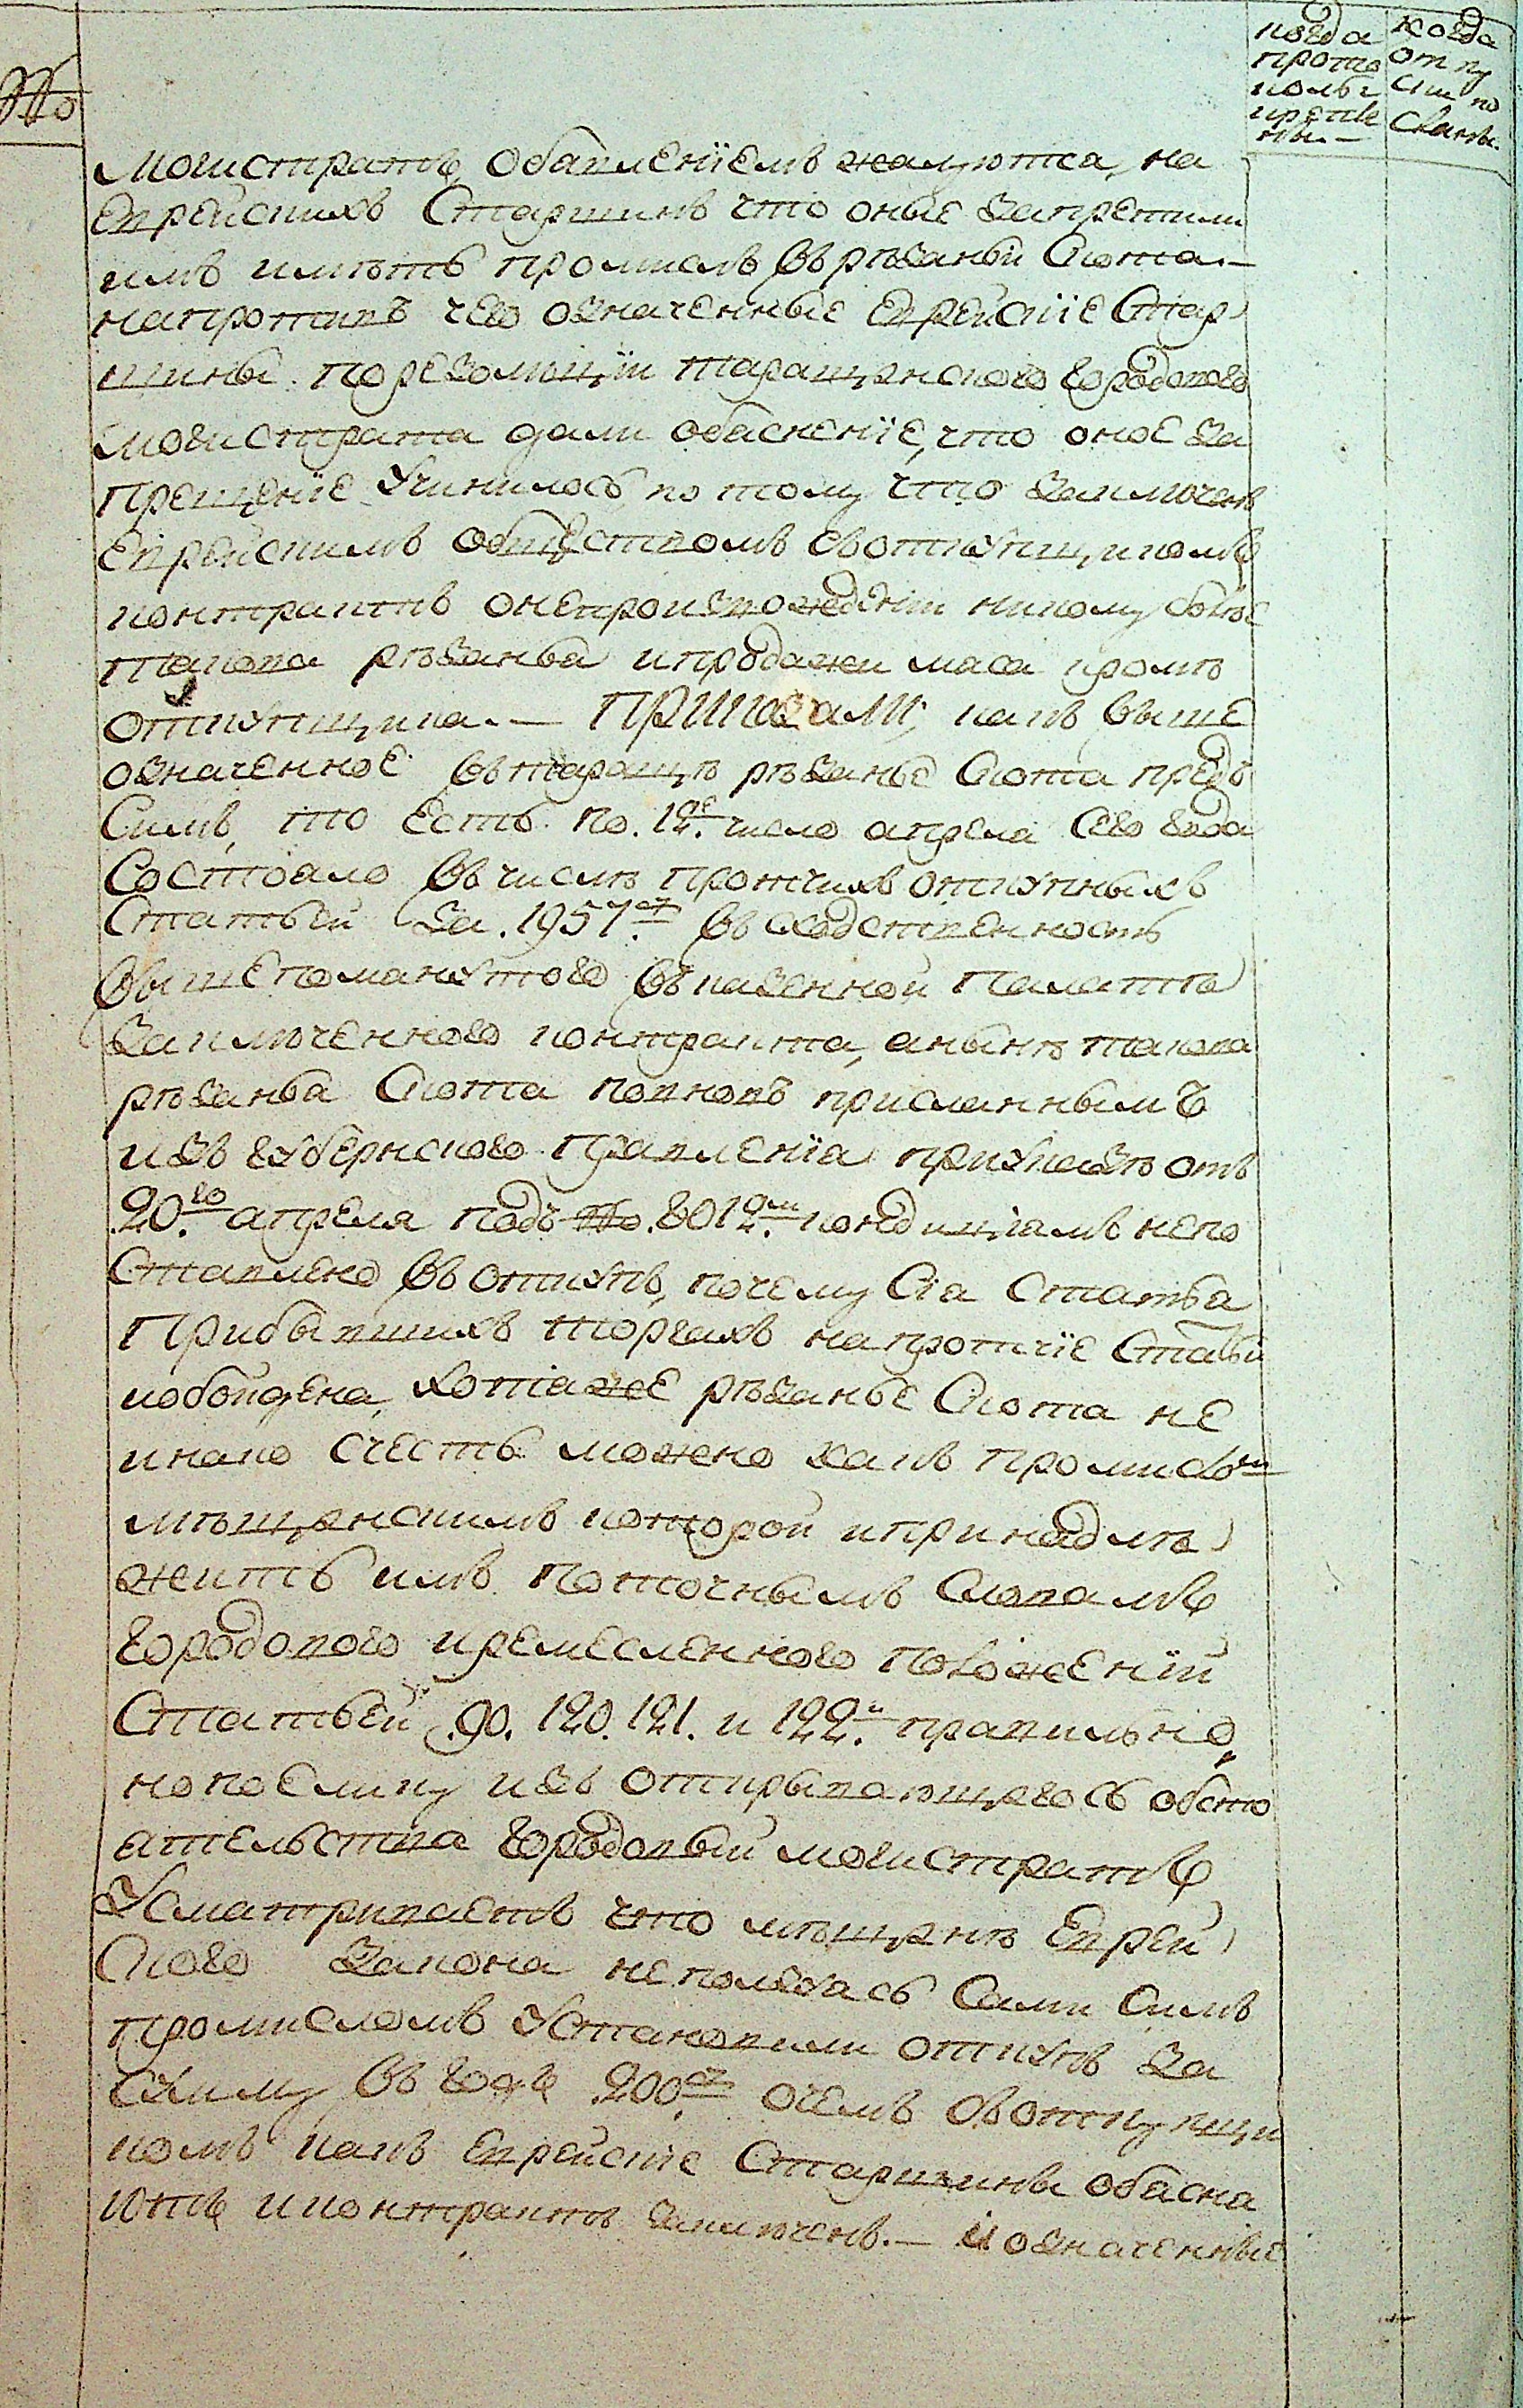 №
когда
прото
колъ
скрепле
нъ.—
когда
отпу
сш по
магистратъ, обявленіемъ жалуются, на
Еврейскихъ Старшинъ что оные запретили
имъ имѣть промыслъ въ рѣзаньи Скота.—
напротивъ чего означенные Еврейскіе Стар
шины по резолюціи таращанского городового
магистрата дали обясненіе, что оное за
прещеніе учинилось, по тому что заключенъ
Еврейскимъ обществомъ съ откупщикомъ
контрактъ о непроизвожденіи никому более
такова рѣзанья и продажи мяса кромѣ
откупщика.— Приказали, какъ выше
означенное въ таращѣ рѣзанье Скота предъ
Симъ, то есть по. 12.ое число апреля Сего года
Состояло въ числѣ протчихъ откупныхъ
Статьей за. 1957.ру въ сходственность
вышепомянутого въ казенной Палатѣ
заключенного контракта, а нынѣ такова
рѣзанья Скота по вновь присланнымъ
изъ губернского правленія при указѣ отъ
20.го апреля подъ № 8012.мъ кондиціямъ не по
Ставлено въ откупъ, почему Сія Статья
При бывшихъ торгахъ на протчіе Статьи
и обойдена, хотя же рѣзанье Скота не
инако счесть можно какъ промысломъ
мѣщанскимъ которой и принадлѣ
житъ имъ по точнымъ Словамъ
городового и ремесленного положеній
Статьей .90. 120. 121. и 122.й правильно,
но поелику изъ открывающегось обсто
ятельства городовый магистратъ
Усматриваетъ что мѣщанѣ Еврей
Ского закона не ползуясь Сами Симъ
промысломъ Установили откупъ за
Сумму въ годъ 200.ру о чемъ съ откупщи
комъ какъ Еврейскіе Старшины обясня
ютъ и контрактъ заключенъ.— и означенные